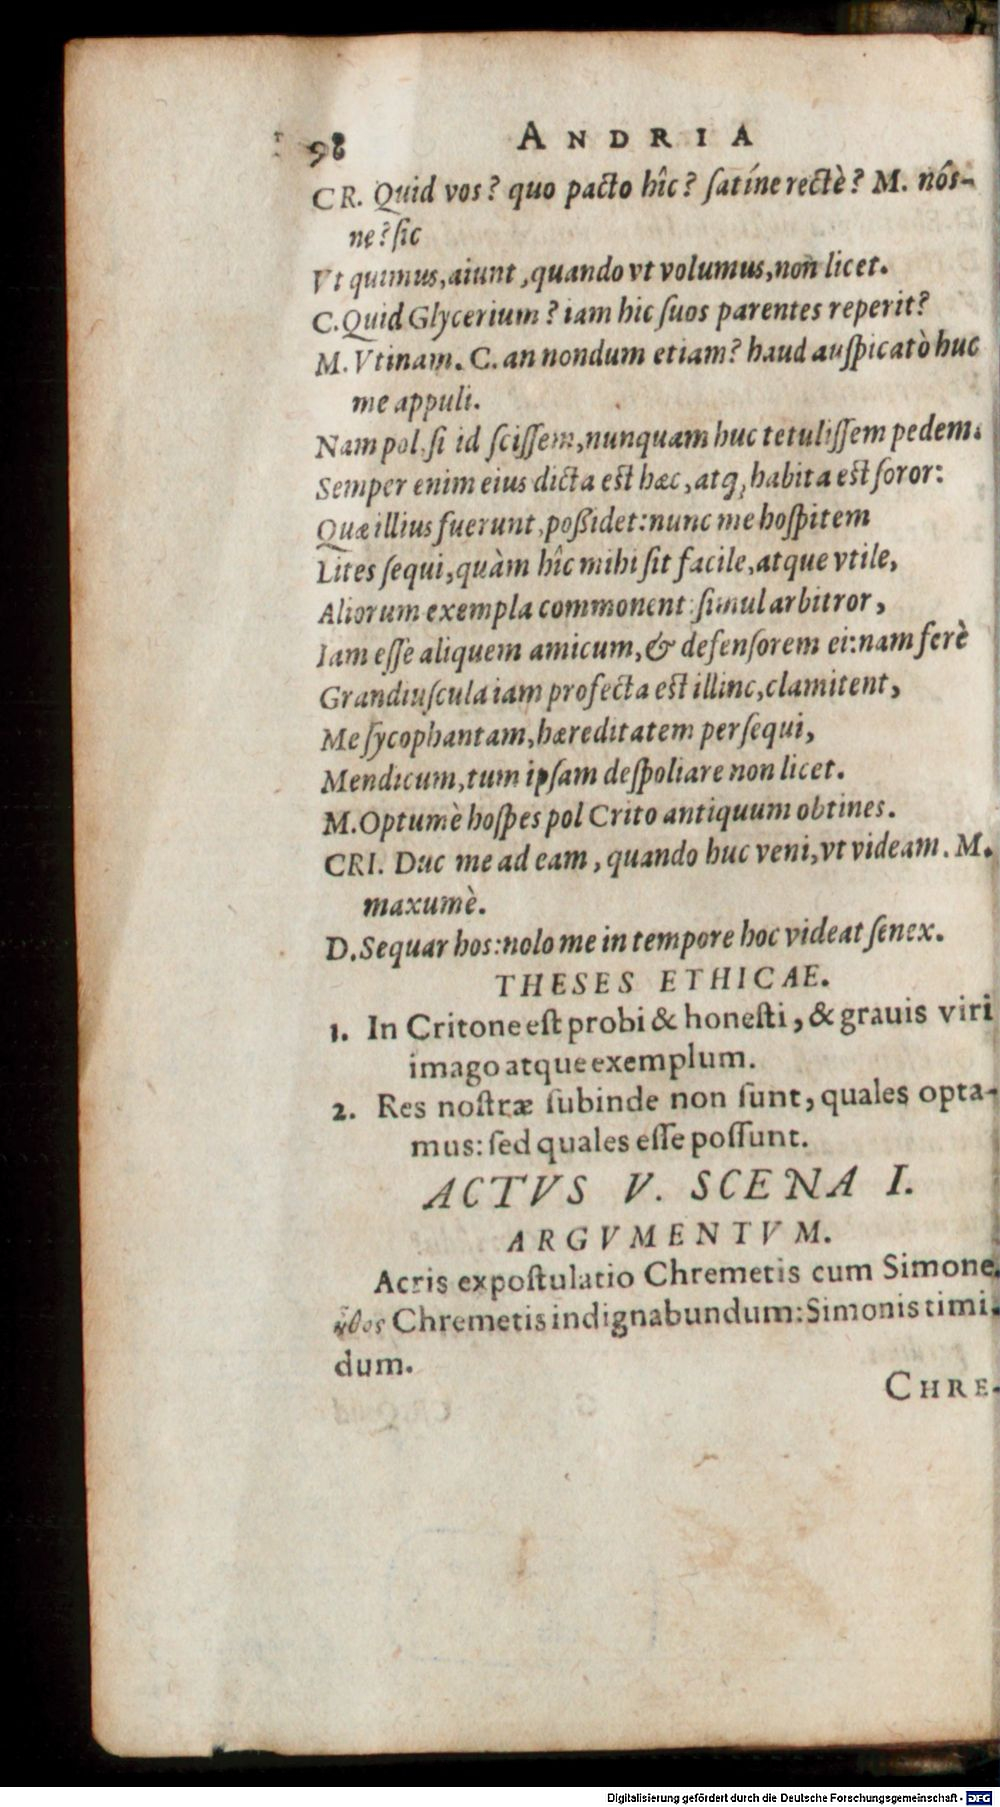 98 ANDRIA
CR. Quid vos? quo pacto hîc? satíne rectè? M. nós-
ne? sic
Vt quimus, aiunt, quando vt volumus, non licet.
C. Quid Glycerium? iam hic suos parentes reperit?
M. Vtinam. C. an nondum etiam? haud auspicatò huc
me appuli.
Nam pol, si id scissem, nunquam huc tetulissem pedem:
Semper enim eius dicta est hæc, atq; habita est soror:
Quæ illius fuerunt, possidet: nunc me hospitem
Lites sequi, quàm hîc mihi sit facile, atque vtile,
Aliorum exempla commonent: simul arbitror,
Iam esse aliquem amicum, & defensorem ei: nam ferè
Grandiuscula iam profecta est illinc, clamitent,
Me sycophantam, hæreditatem persequi,
Mendicum, tum ipsam despoliare non licet.
M. Optumè hospes pol Crito antiquum obtines.
CRI. Duc me ad eam, quando huc veni, vt videam. M.
maxumè.
D. Sequar hos: nolo me in tempore hoc videat senex.
THESES ETHICAE.
1. In Critone est probi & honesti, & grauis viri
imago atque exemplum.
2. Res nostræ subinde non sunt, quales opta-
mus: sed quales esse possunt.
ACTVS V. SCENA I.
ARGVMENTVM.
Acris expostulatio Chremetis cum Simone.
Chremetis indignabundum: Simonis timi-
dum.
CHRE-
Digitalisierung gefördert durch die Deutsche Forschungsgemeinschaft - DFG